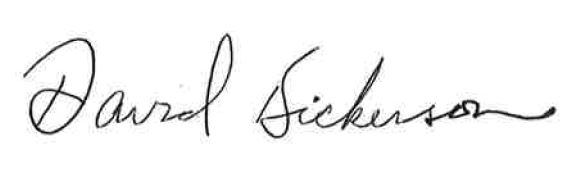 David Dickerson